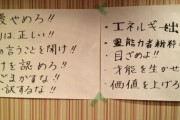 やめろ!!
は正しい!!
の言うことを聞け!!
を認めろ!!
ごまかすな!!
試するな!!
・エネルギー
・霊能力者
・目ざめよ!!
・才能を生かせ
・価値を上げろ